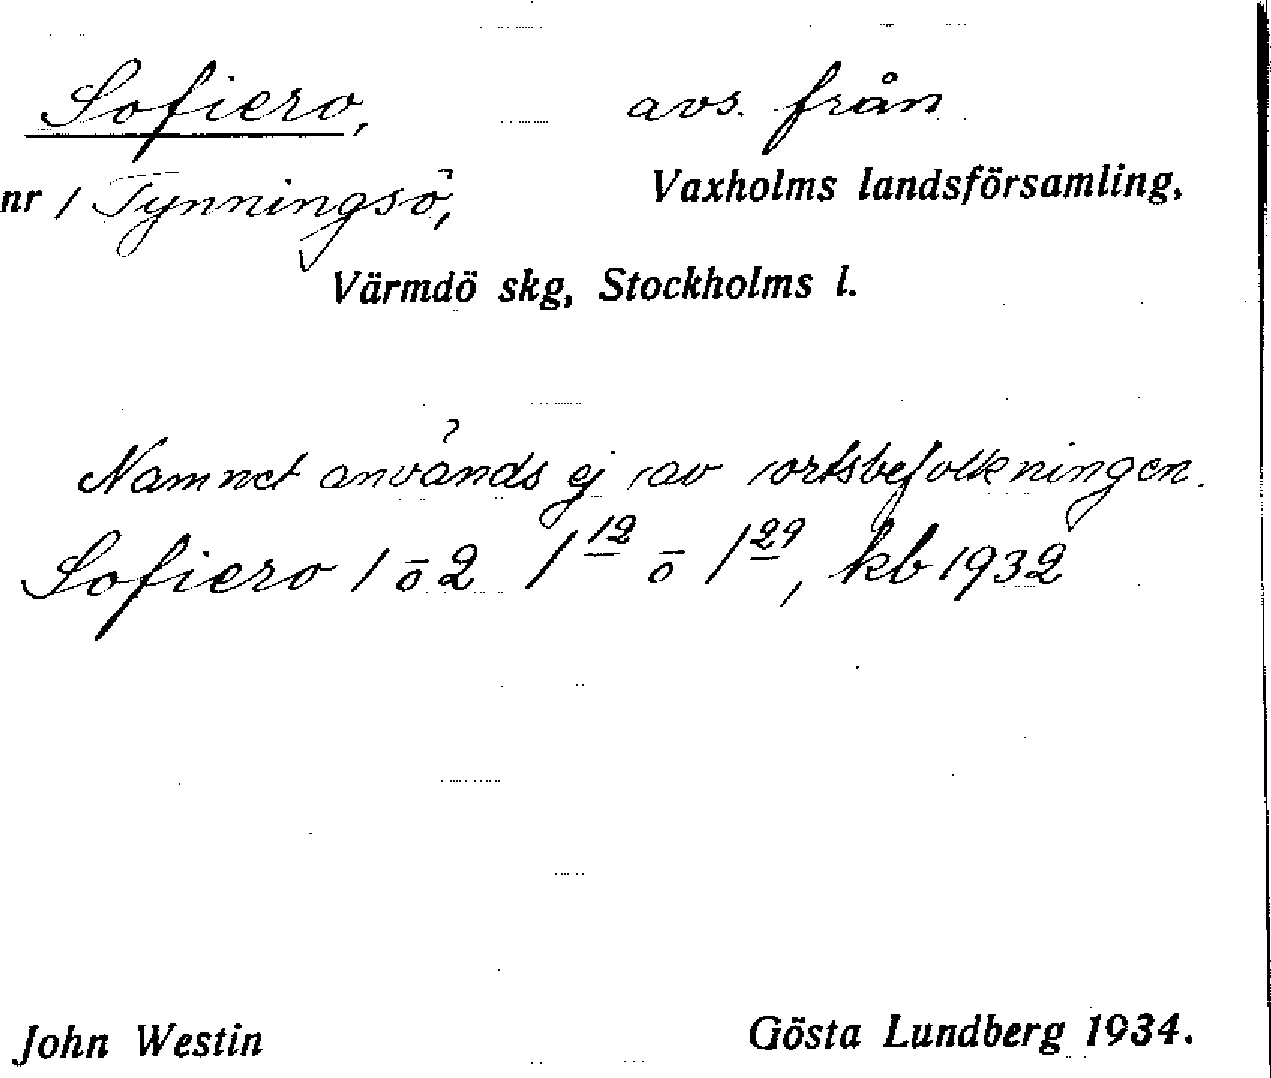 Sofiero, avs. från
nr 1 Tynningsö, Vaxholms landsförsamling,
Värmdö skg, Stockholms l.
Namnet används ej av ortsbefolkningen.
Sofiero 1 o 2 1¹² o 1²⁹, kb 1932
John Westin Gösta Lundberg 1934.